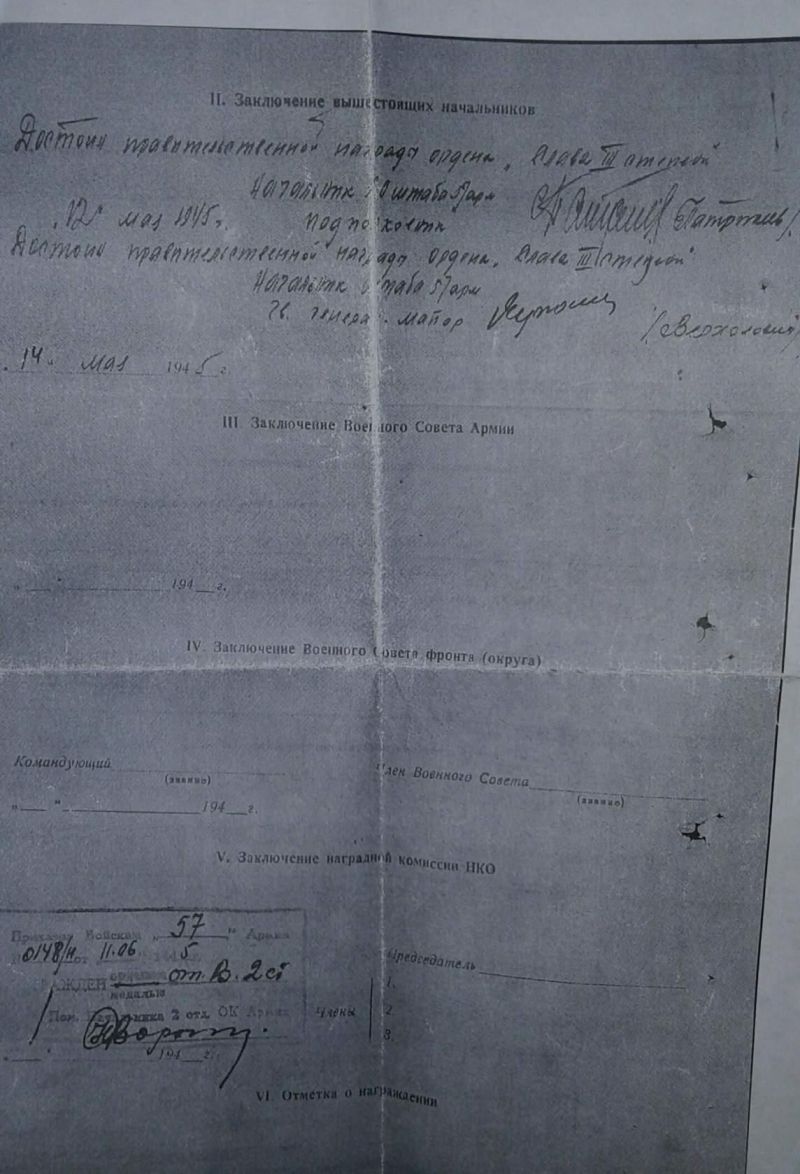 II. Заключение вышестоящих начальников
Достоин правительственной награды ордена „Слава III степени"
Начальник штаба 57 арм
„12" мая 1945г. подполковник
Достоин правительственной награды ордена „Слава III степени"
Начальник штаба 57 арм
Гв. генерал-майор
„14" мая 1945 г.
III. Заключение Военного Совета Армии
„ " 194 г.
IV. Заключение Военного Совета фронта (округа)
Командующий
(звание)
Член Военного Совета
(звание)
„ " 194 г.
V. Заключение наградной комиссии НКО
Приказом Войскам „57" Армии
0148/н от 11.06. 5
НАГРАЖДЕН орденом от. В. 2 ст
медалью
Пом. Начальника 2 отд. ОК Армии
„ " 194 г.
Председатель
Члены
1.
2.
3.
VI. Отметка о награждении